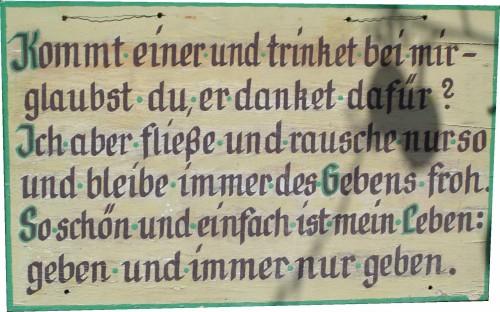 Kommt einer und trinket bei mir–
glaubst du, er danket dafür?
Ich aber fließe und rausche nur so
und bleibe immer des Gebens froh.
So schön und einfach ist mein Leben:
geben und immer nur geben.